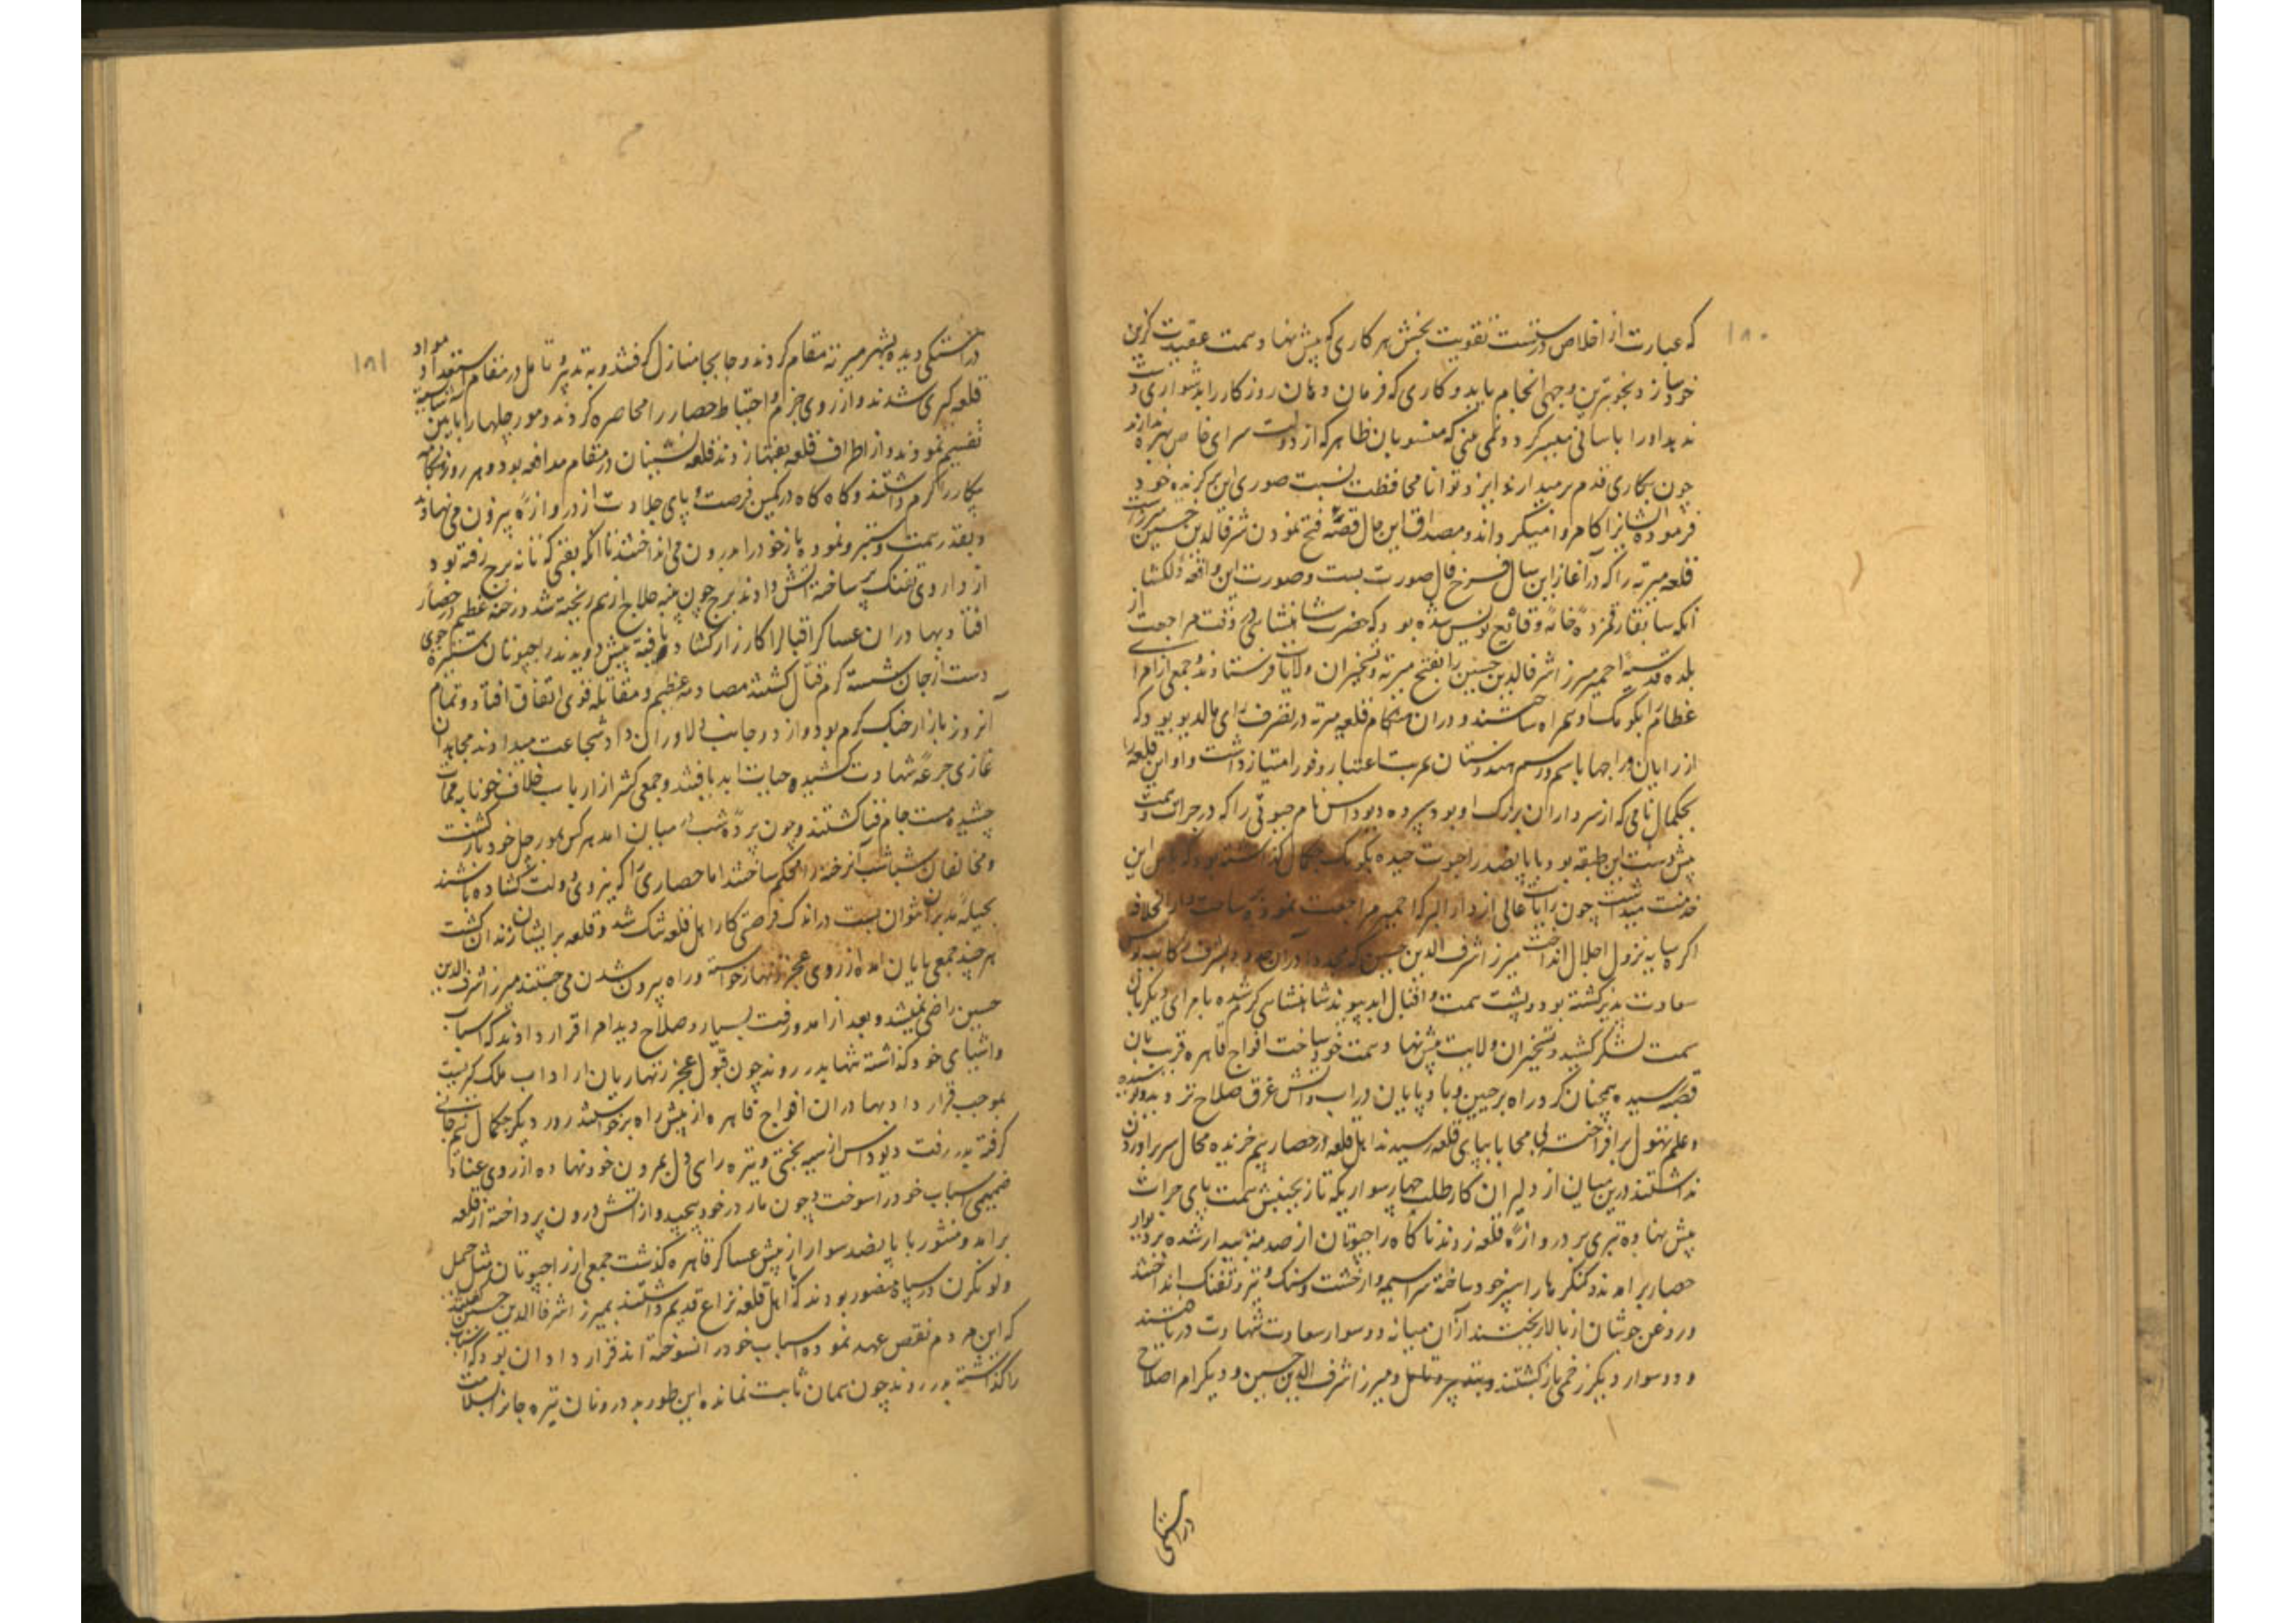 ۱۸۰
که عبارت از اخلاص درستست تقویت بخش هر کاری که پیش نهاد همت عقیدت گزین
خود سازد بخوبترین وجهی انجام یابد و کاری که فرمان دهان روزگار را بدشواری دست
ندهد او را باسانی میسر گردد نمی بینی که منسوبان ظاهر که از دولت سرای خاص بهره ندارند
چون بکاری قدم بر میدارند ایزد توانا محافظت نسبت صوری این برگزیده خود
فرموده ایشانرا کامروا میگرداند و مصداق این حال قصه فتح نمودن شرف الدین حسین میرزاست
قلعه میرته را که در آغاز این سال فرخ فال صورت بست و صورت این واقعه دلکشا
آنکه سابقا رقمزده خامه وقایع نویس شده بود که حضرت شاهنشاهی در وقت مراجعت از
بلده قدسیه اجمیر میرزا شرف الدین حسین را بفتح میرته و تسخیر ان ولایت فرستادند و جمعی از امرا
عظام را بکومک او همراه ساختند و دران هنگام قلعه میرته در تصرف رای مالدیو بود که
از رایان و راجها باسم و رسم هندوستان بمرتبت اعتبار وفور امتیاز داشت و او این قلعه را
بجکمال نامی که از سرداران بزرگ او بود سپرده دیوداس نام جیوتی را که در جرات و همت
پیش دست این طبقه بود با پانصد راجپوت چیده بکومک جکمال گذاشته بود که پاس این
خدمت میداشت چون رایات عالی از دار البرکه اجمیر مراجعت نموده بساحت دار الخلافه
اگره سایه نزول اجلال انداخت میرزا شرف الدین حسین که مجددا دران حدود بشرف
سعادت پذیر گشته بود در پشت همت و اقبال ابد پیوند شاهنشاهی گرم شده با امرای دیگر بان
سمت لشکر کشید و تسخیر ان ولایت پیش نهاد همت خود ساخت افواج قاهره قریب بان
قصبه رسیده همچنان گرد راه بر جبین و باد پایان در اب و اتش غرق صلاح نزول ندیده
و علم تهور بر افراخته بی محابا بپای قلعه رسیدند اهل قلعه در حصار بیم خزیده مجال سر براوردن
نداشتند درین میان از دلیران کار طلب چهار سوار یکه تاز بجنبش همت پای جرات
پیش نهاده تیری بر دروازه قلعه زدند ناگاه راجپوتان از صدمه بیدار شده بر دیوار
حصار برامدند و کنگرها را سپر خود ساخته سراسیمه وار خشت و سنگ و تیر و تفنگ انداختند
و روغن جوشان از بالا ریختند ازان میانه دو سوار سعادت شهادت دریافتند
و دو سوار دیگر زخمی باز گشتند و بتدبیر و تامل و میرزا شرف الدین حسین و دیگر امرا صلاح
در اهستگی
۱۸۱
در اهستگی دیده بشهر میرته مقام کردند و جابجا منازل گرفتند و به تدبیر و تامل در مقام استعداد مواد
قلعه گیری شدند و از روی حزم و احتیاط حصار را محاصره کردند و مورچلها را بایین شایسته
تقسیم نمودند و از اطراف قلعه نقبها زدند قلعه نشینان در مقام مدافعه بوده هر روز هنگامه
پیکار را گرم داشتند و گاه گاه در کمین فرصت پای جلادت از دروازه بیرون می نهادند
و بقدر همت دستبرد نموده باز خود را در درون می انداختند تا آنکه نقبی که تا ته برج رفته بود
از داروی تفنگ پر ساخته آتش دادند برج چون پنبه حلاج از هم ریخته شد و رخنه عظیم در حصار
افتاد بهادران عساکر اقبال را کارزار گشاد یافته پیش دویدند راجپوتان ستیزه جوی
دست از جان شسته گرم قتال گشتند مصادمه عظیم و مقاتله قوی اتفاق افتاد و تمام
آنروز بازار جنگ گرم بود و از دو جانب دلاوران داد شجاعت میدادند مجاهدان
غازی جرعه شهادت کشیده حیات ابد یافتند و جمعی کثیر از ارباب خلاف خونابه ممات
چشیده مست جام فنا گشتند و چون پرده شب در میان امد هر کس بمورچل خود باز گشت
و مخالفان شباشب آنرخنه را محکم ساختند اما حصاری را که نیروی دولت گشاده باشند
بحیله و تدبیر نتوان بست در اندک فرصتی کار اهل قلعه تنگ شد و قلعه بر ایشان زندان گشت
هر چند جمعی پایان امده از روی عجز زنهار خواسته راه بیرون شدن می جستند میرزا شرف الدین
حسین راضی نمیشد و بعد از امد و رفت بسیار و صلاح دید امرا قرار دادند که اسباب
و اشیای خود گذاشته تنها بدر روند چون قبول عجز زنهاریان از اداب ملک گیریست
بموجب قرارداد بهادران افواج قاهره از پیش راه برخواستند روز دیگر جکمال نیم جانی
گرفته بدر رفت دیوداس از سیه بختی و تیره رای دل بمردن خود نهاده از روی عناد
صمیمی اسباب خود را سوخت و چون مار در خود پیچید و از آتش درون پرداخته از قلعه
برامد و متهور با پانصد سوار از پیش عساکر قاهره گذشت جمعی از راجپوتان مثل جیمل
و لونکرن در سپاه منصور بودند که با اهل قلعه نزاع قدیم داشتند بمیرزا شرف الدین حسین گفتند
که این مردم نقص عهد نموده اسباب خود را سوخته اند قرارداد ان بود که اسباب
را گذاشته بدر روند چون پیمان ثابت نمانده این طور بد درونان تیره جانرا بسلامت